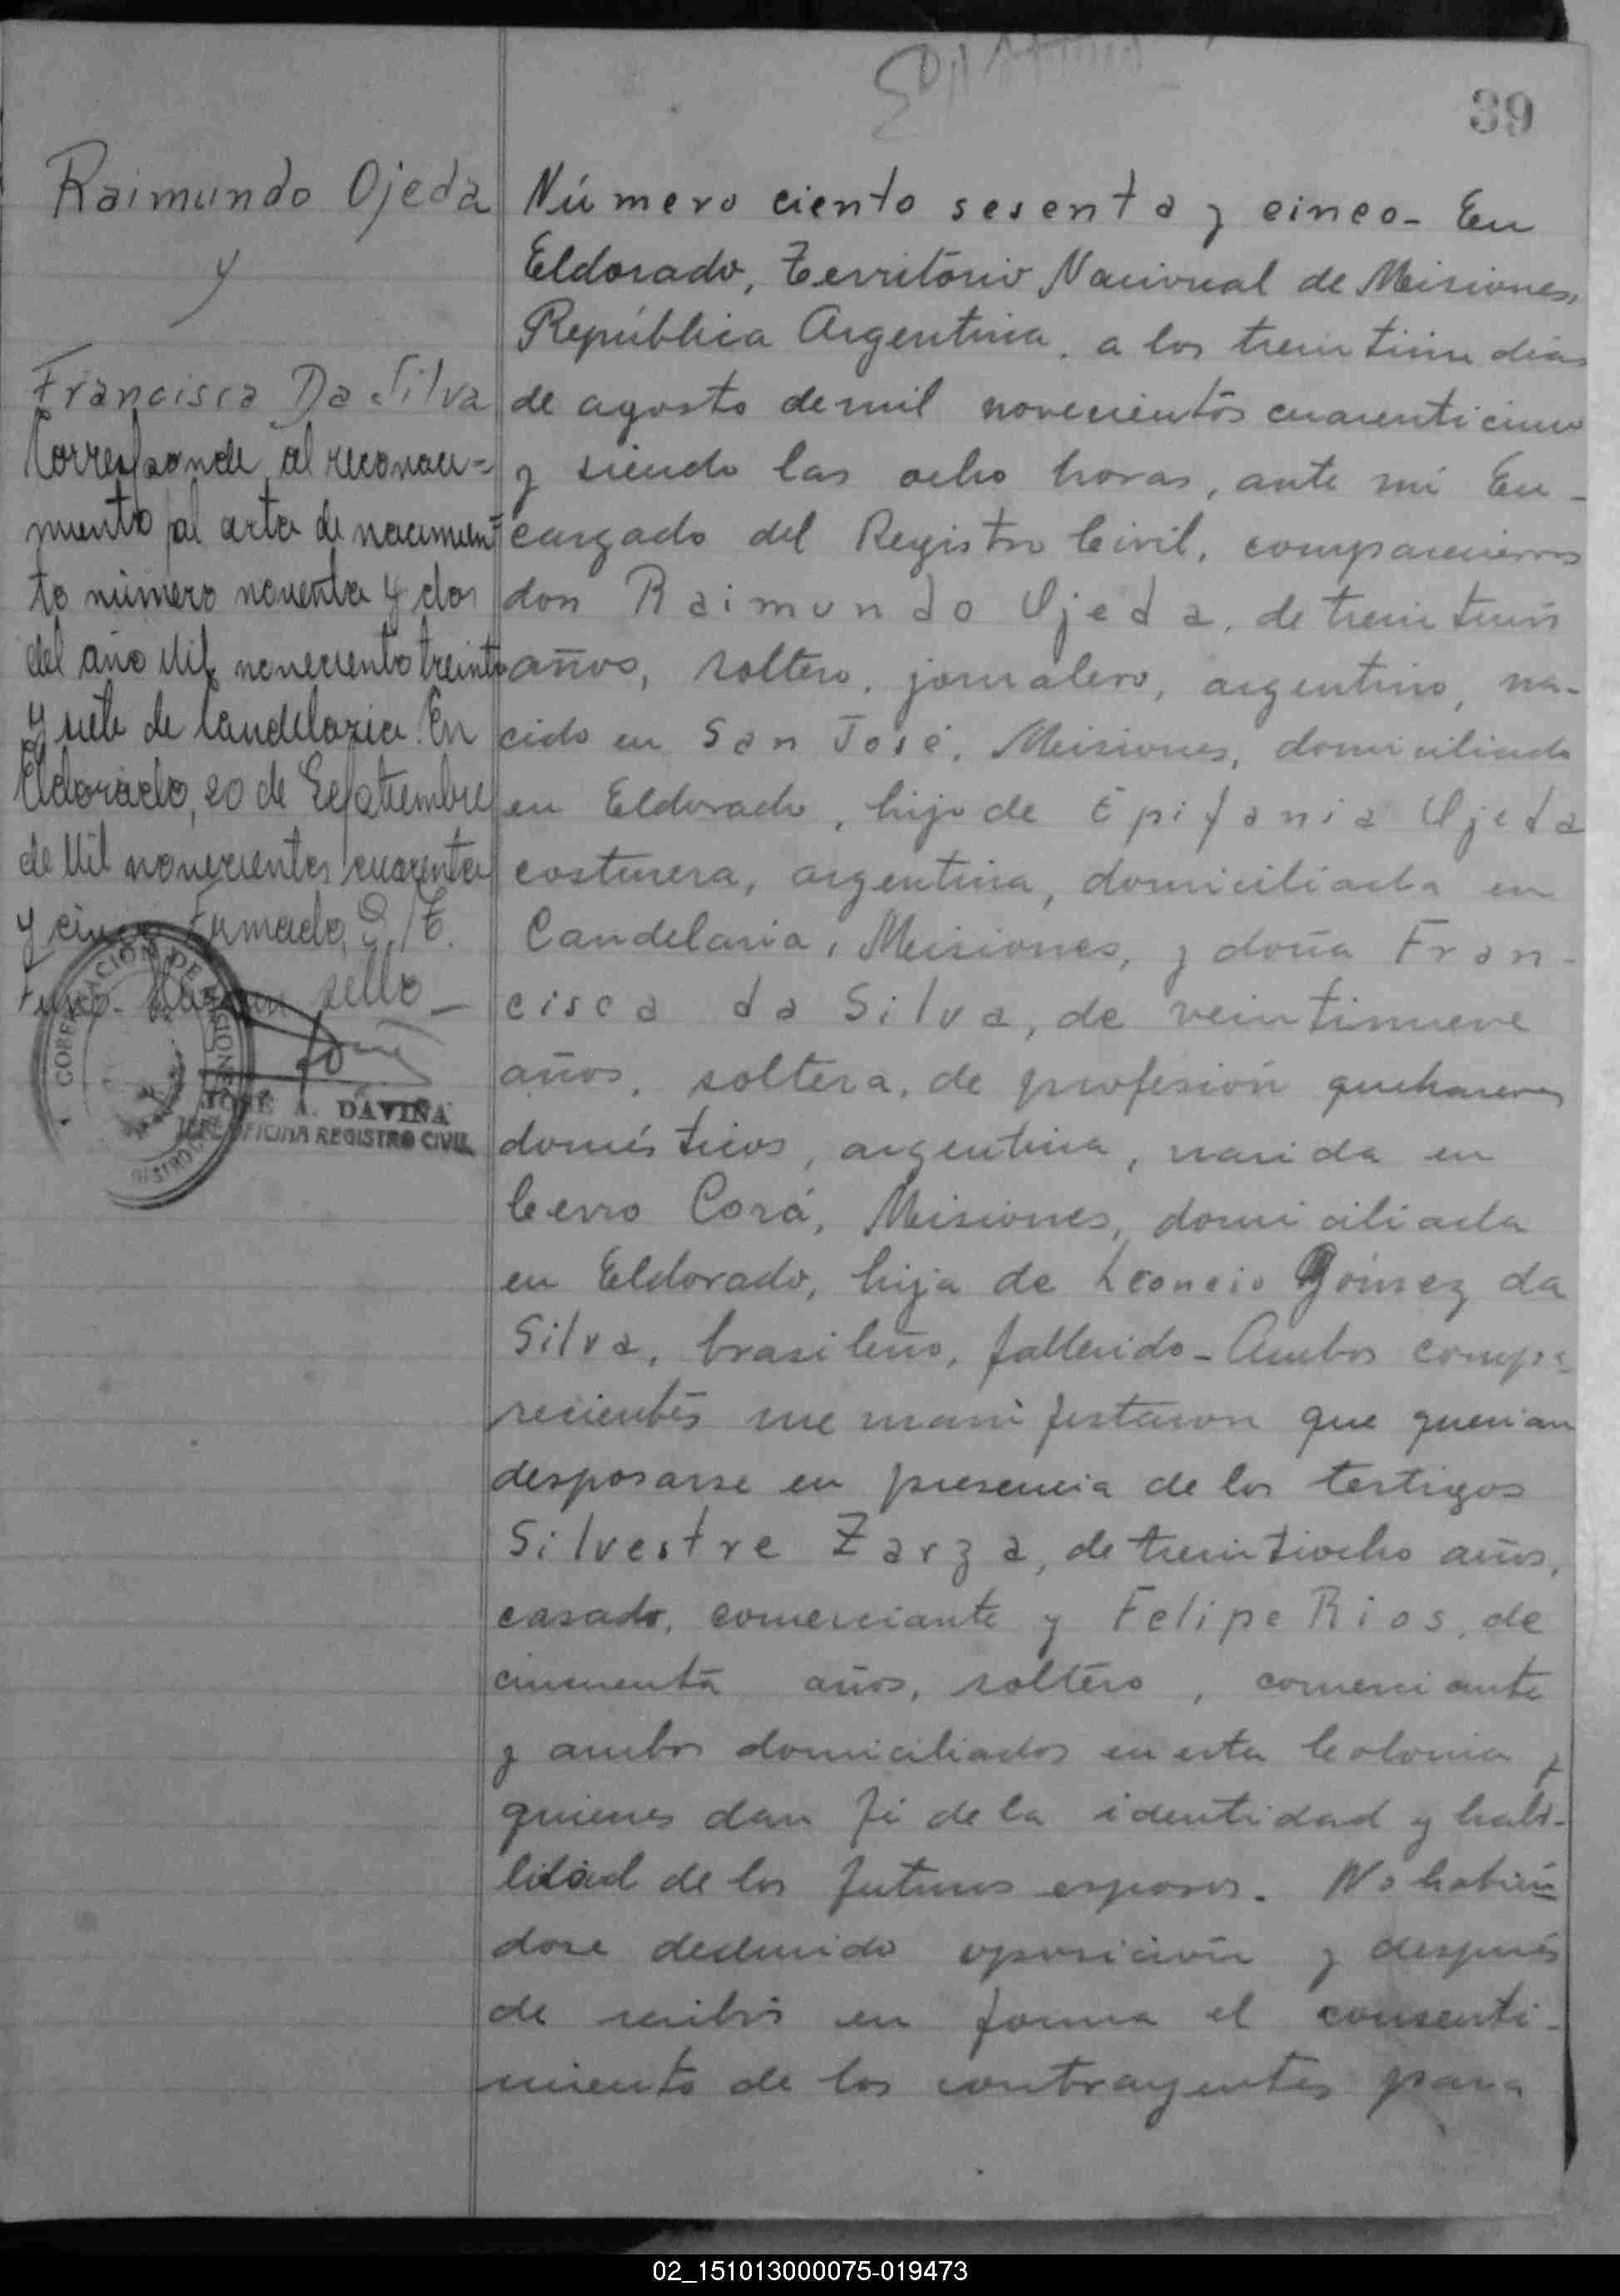 39
Raimundo Ojeda
y
Francisca Da Silva
Corresponde al reconoci=
miento al acta de nacimien=
to número noventa y dos
del año Mil novecientos treinta
y siete de Candelaria. En
Eldorado, 20 de Septiembre
de Mil novecientos cuarenta
y cinco Firmado
sello _
GOBERNACION DE MISIONES
REGISTRO
JOSE A. DAVIÑA
JEFE OFICINA REGISTRO CIVIL
Número ciento sesenta y cinco - En
Eldorado, Territorio Nacional de Misiones,
República Argentina, a los treintiun dias
de agosto de mil novecientos cuarenticinco
y siendo las ocho horas, ante mi En-
cargado del Registro Civil, comparecieron
don Raimundo Ojeda, de treintiun
años, soltero, jornalero, argentino, na-
cido en San José, Misiones, domiciliado
en Eldorado, hijo de Epifania Ojeda
costurera, argentina, domiciliada en
Candelaria, Misiones, y doña Fran-
cisca da Silva, de veintinueve
años, soltera, de profesión quehaceres
domésticos, argentina, nacida en
Cerro Corá, Misiones, domiciliada
en Eldorado, hija de Leoncio Gómez da
Silva, brasileño, fallecido - Ambos compa-
recientes me manifestaron que querian
desposarse en presencia de los testigos
Silvestre Zarza, de treintiocho años,
casado, comerciante y Felipe Rios, de
cincuenta años, soltero, comerciante
y ambos domiciliados en esta Colonia y
quienes dan fé de la identidad y habi-
lidad de los futuros esposos. No habién
dose deducido oposición y después
de recibir en forma el consenti-
miento de los contrayentes para
02_151013000075-019473